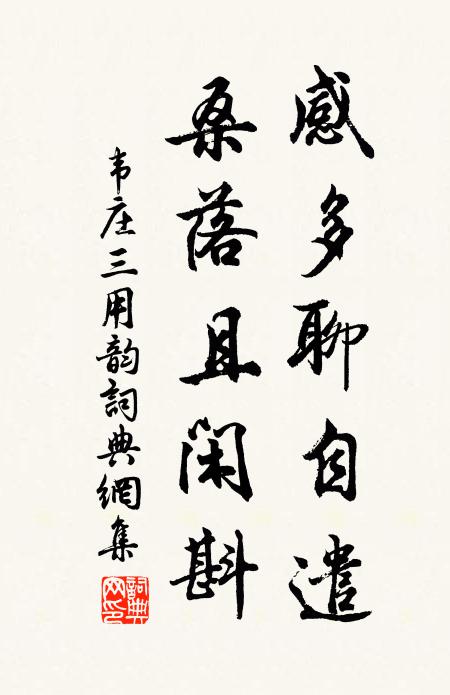 感多聊自遣
桑落且闲斟
韦庄三用韵詞典網集
詞典网印